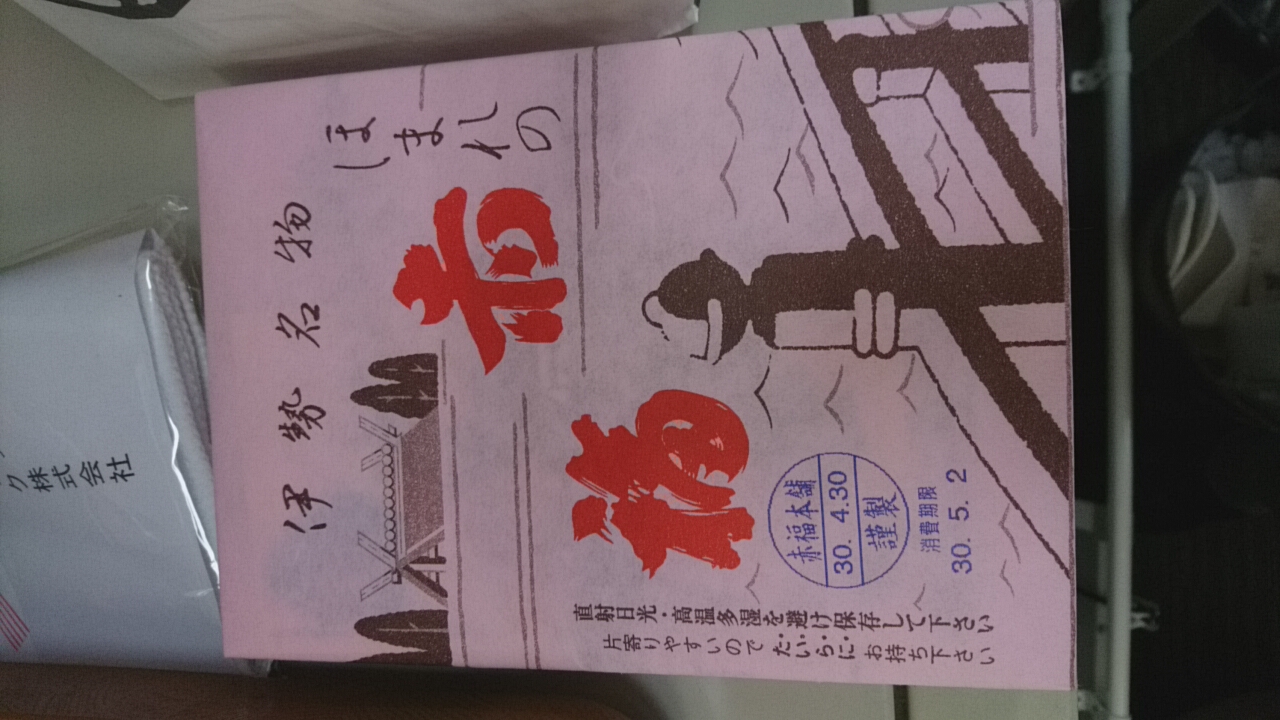 伊勢名物
ほまれの
赤福
赤福本舗
30. 4.30
謹製
消費期限
30. 5. 2
直射日光・高温多湿を避け保存して下さい
片寄りやすいのでたいらにお持ち下さい
株式会社